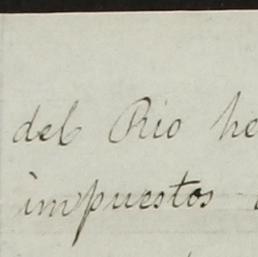 del Rio he
impuestos